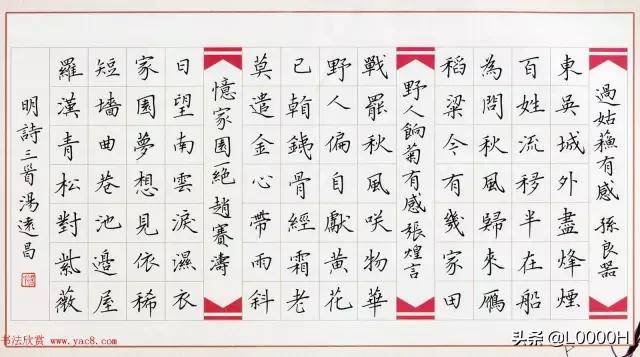 過姑蘓有感 孫良器
東吳城外盡烽煙
百姓流移半在船
為問秋風歸來雁
稻粱今有幾家田
野人餉菊有感張煌言
戰罷秋風咲物華
野人偏自獻黃花
已銕骨經霜老
莫遣金心帶雨斜
憶家園一絕趙賽濤
日望南雲淚濕衣
家園夢想見依稀
短墻曲巷池邊屋
羅漢青松對紫薇
明詩三首湯遠昌
书法欣赏 www.yac8.com
头条 @L0000H